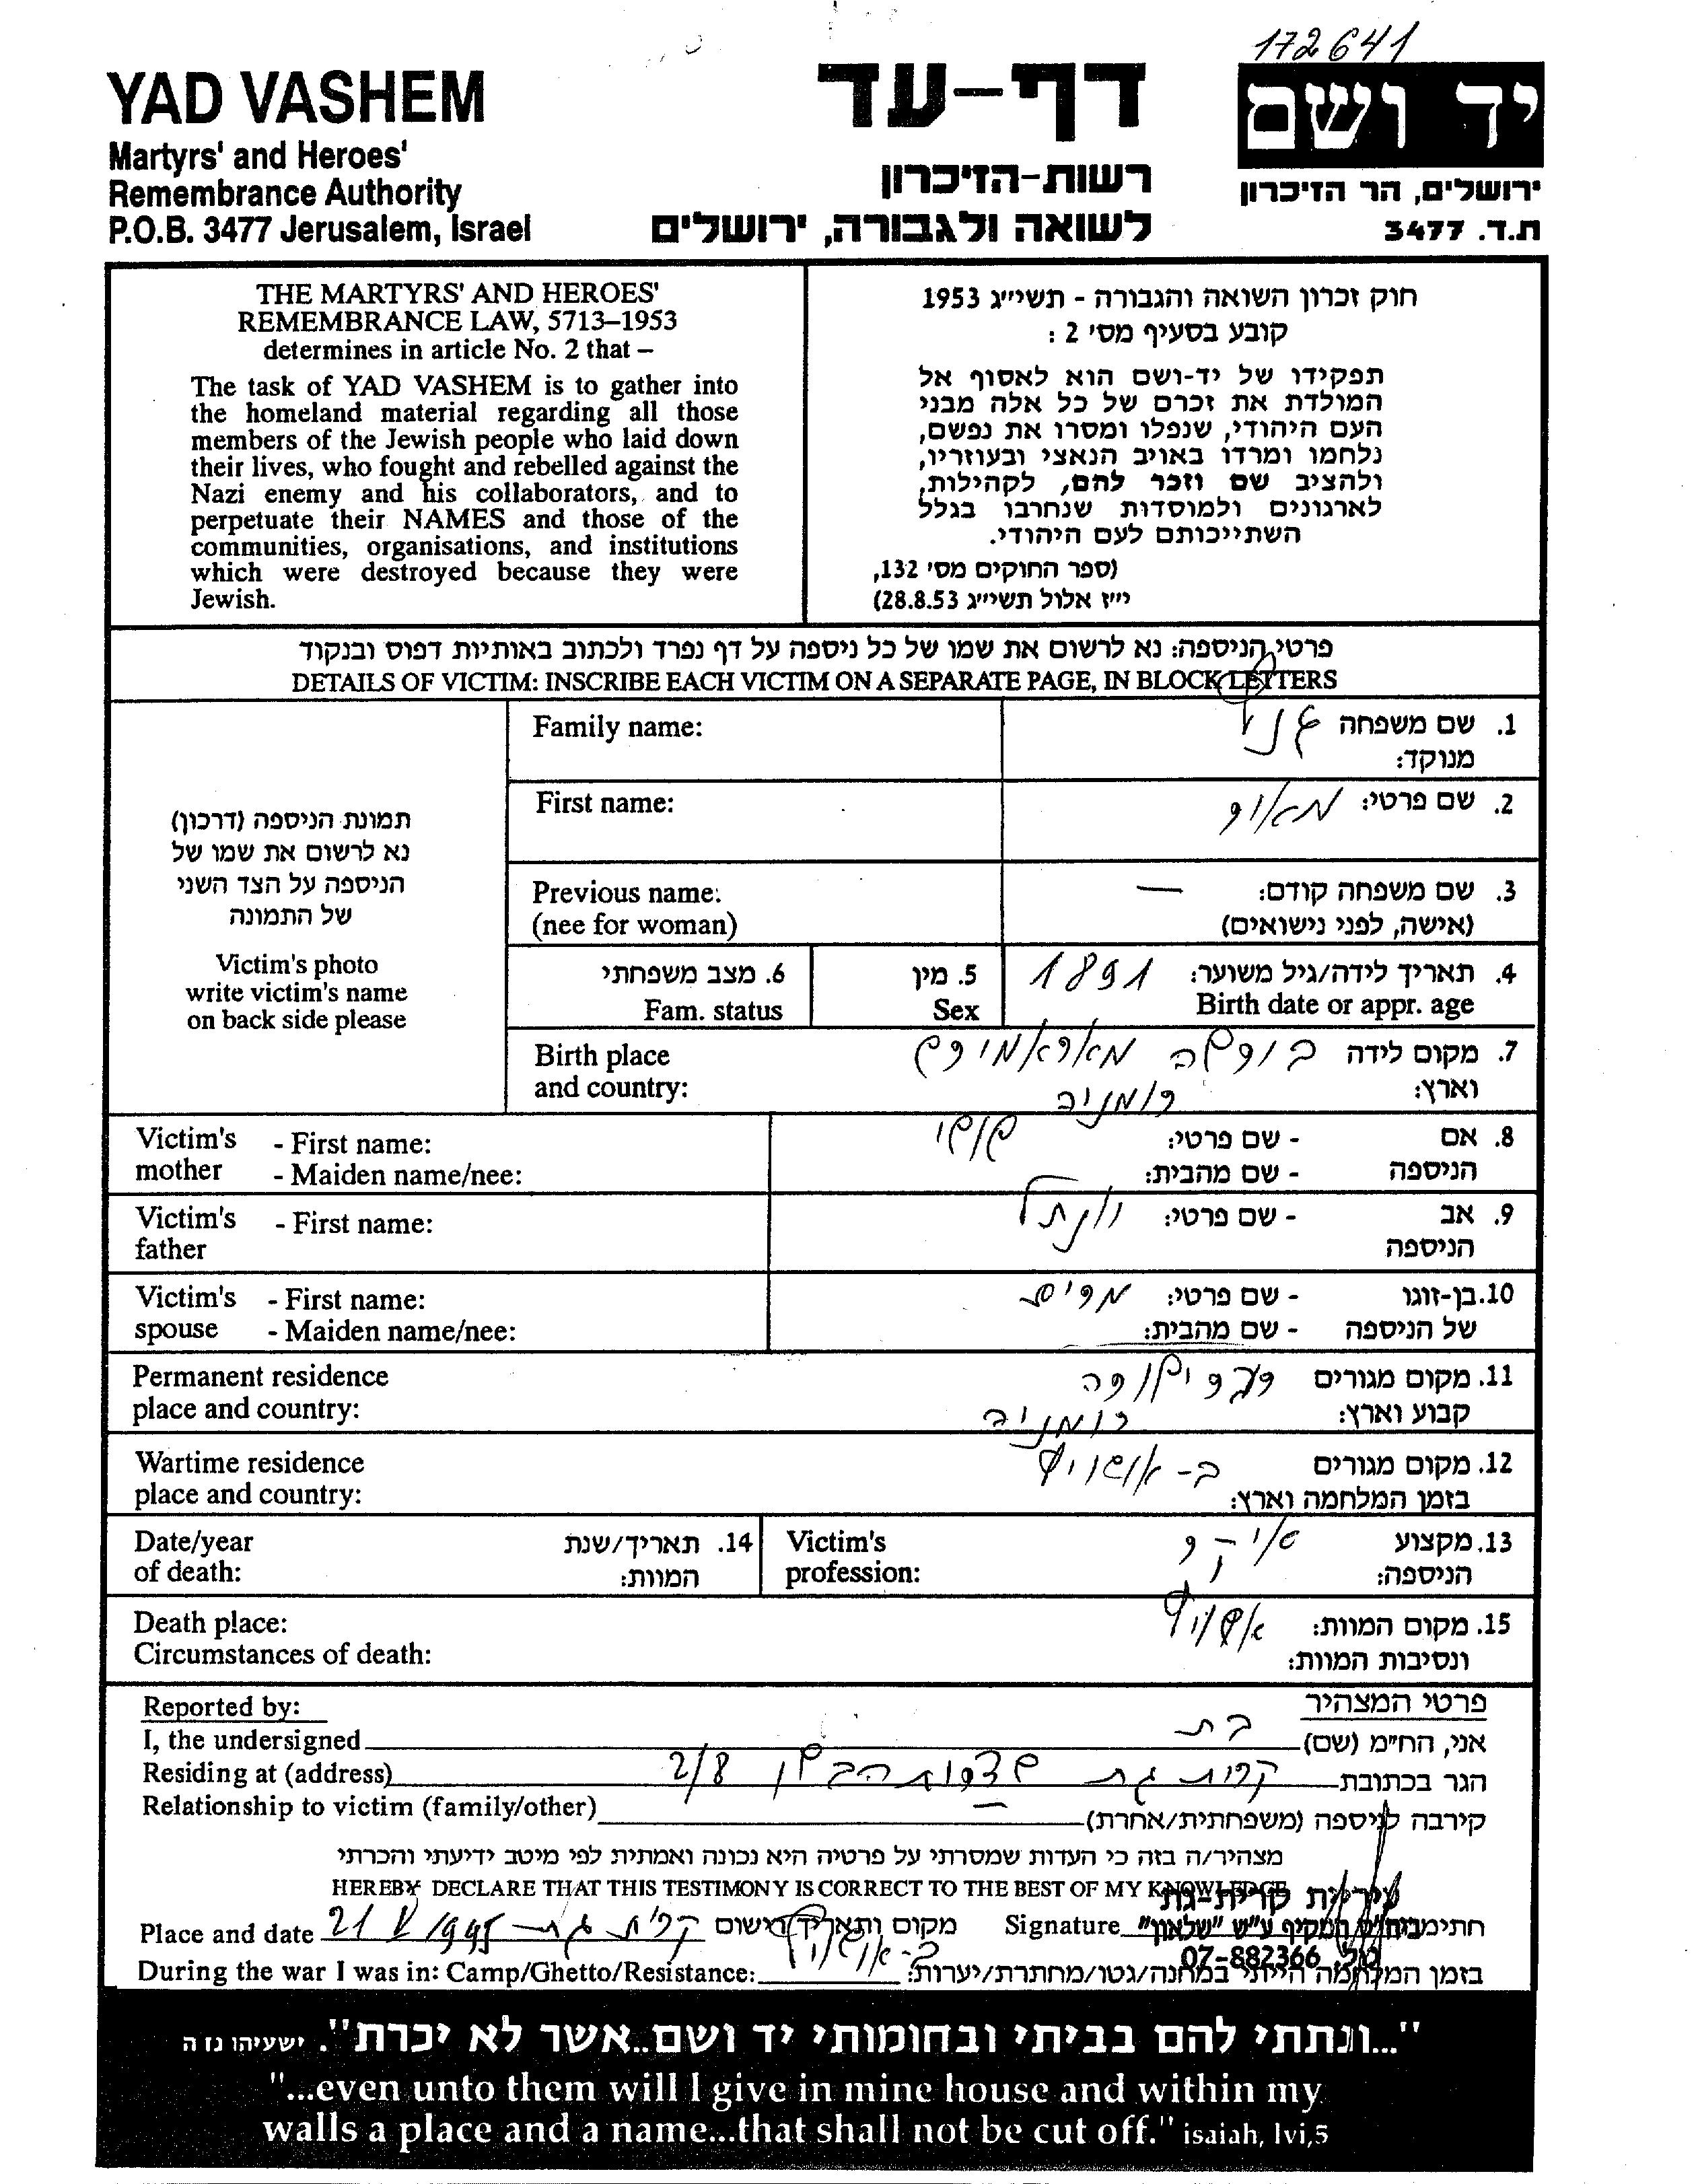 172641
YAD VASHEM
Martyrs' and Heroes'
Remembrance Authority
P.O.B. 3477 Jerusalem, Israel
דף-עד
רשות-הזיכרון
לשואה ולגבורה, ירושלים
יד ושם
ירושלים, הר הזיכרון
ת.ד. 3477
THE MARTYRS' AND HEROES'
REMEMBRANCE LAW, 5713–1953
determines in article No. 2 that –
The task of YAD VASHEM is to gather into
the homeland material regarding all those
members of the Jewish people who laid down
their lives, who fought and rebelled against the
Nazi enemy and his collaborators, and to
perpetuate their NAMES and those of the
communities, organisations, and institutions
which were destroyed because they were
Jewish.
חוק זכרון השואה והגבורה - תשי״ג 1953
קובע בסעיף מס׳ 2 :
תפקידו של יד-ושם הוא לאסוף אל
המולדת את זכרם של כל אלה מבני
העם היהודי, שנפלו ומסרו את נפשם,
נלחמו ומרדו באויב הנאצי ובעוזריו,
ולהציב שם וזכר להם, לקהילות,
לארגונים ולמוסדות שנחרבו בגלל
השתייכותם לעם היהודי.
(ספר החוקים מס׳ 132,
י״ז אלול תשי״ג 28.8.53)
פרטי הניספה: נא לרשום את שמו של כל ניספה על דף נפרד ולכתוב באותיות דפוס ובנקוד
DETAILS OF VICTIM: INSCRIBE EACH VICTIM ON A SEPARATE PAGE, IN BLOCK LETTERS
תמונת הניספה (דרכון)
נא לרשום את שמו של
הניספה על הצד השני
של התמונה
Victim's photo
write victim's name
on back side please
Family name:
1. שם משפחה
מנוקד:
First name:
2. שם פרטי: מאור
Previous name:
(nee for woman)
3. שם משפחה קודם: —
(אישה, לפני נישואים)
4. תאריך לידה/גיל משוער: 1891
Birth date or appr. age
5. מין
Sex
6. מצב משפחתי
Fam. status
Birth place
and country:
7. מקום לידה בורשה מאראמורש
וארץ: רומניה
Victim's mother - First name:
- Maiden name/nee:
8. אם - שם פרטי: שושי
הניספה - שם מהבית:
Victim's father - First name:
9. אב - שם פרטי:
הניספה
Victim's spouse - First name:
- Maiden name/nee:
10. בן-זוגו - שם פרטי: מרים
של הניספה - שם מהבית:
Permanent residence
place and country:
11. מקום מגורים
קבוע וארץ: רומניה
Wartime residence
place and country:
12. מקום מגורים ב-אושויץ
בזמן המלחמה וארץ:
Date/year
of death:
14. תאריך/שנת
המוות:
Victim's
profession:
13. מקצוע
הניספה:
Death place:
Circumstances of death:
15. מקום המוות: אושויץ
ונסיבות המוות:
Reported by:
I, the undersigned
Residing at (address)
Relationship to victim (family/other)
פרטי המצהיר
אני, הח״מ (שם) בת
הגר בכתובת קרית גת שדרות הבשן 2/8
קירבה לניספה (משפחתית/אחרת) —
מצהיר/ה בזה כי העדות שמסרתי על פרטיה היא נכונה ואמתית לפי מיטב ידיעתי והכרתי
HEREBY DECLARE THAT THIS TESTIMONY IS CORRECT TO THE BEST OF MY KNOWLEDGE
עירית קרית-גת
Place and date 21 V 1995 קרית גת מקום ותאריך רישום
Signature חתימה
ביה״ס המקיף ע״ש "שלאון"
טל. 07-882366
During the war I was in: Camp/Ghetto/Resistance:
בזמן המלחמה הייתי במחנה/גטו/מחתרת/יערות: ב-אושויץ
"...ונתתי להם בביתי ובחומותי יד ושם..אשר לא יכרת". ישעיהו נז ה
"...even unto them will I give in mine house and within my
walls a place and a name...that shall not be cut off." isaiah, lvi,5